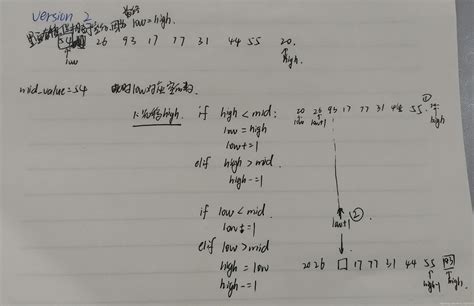 version 2
low = high.
54 26 93 17 77 31 44 55 20.
low
high
mid_value = 54 此时low对应空的数.
1. 先移high.
if high < mid:
low = high
low += 1
elif high > mid
high -= 1
20 26 93 17 77 31 44 55 ①
low low+1 high
if low < mid.
low += 1
elif low > mid
high = low
high -= 1
low+1 ②
20 26 □ 17 77 31 44 55 93
high-1 high.